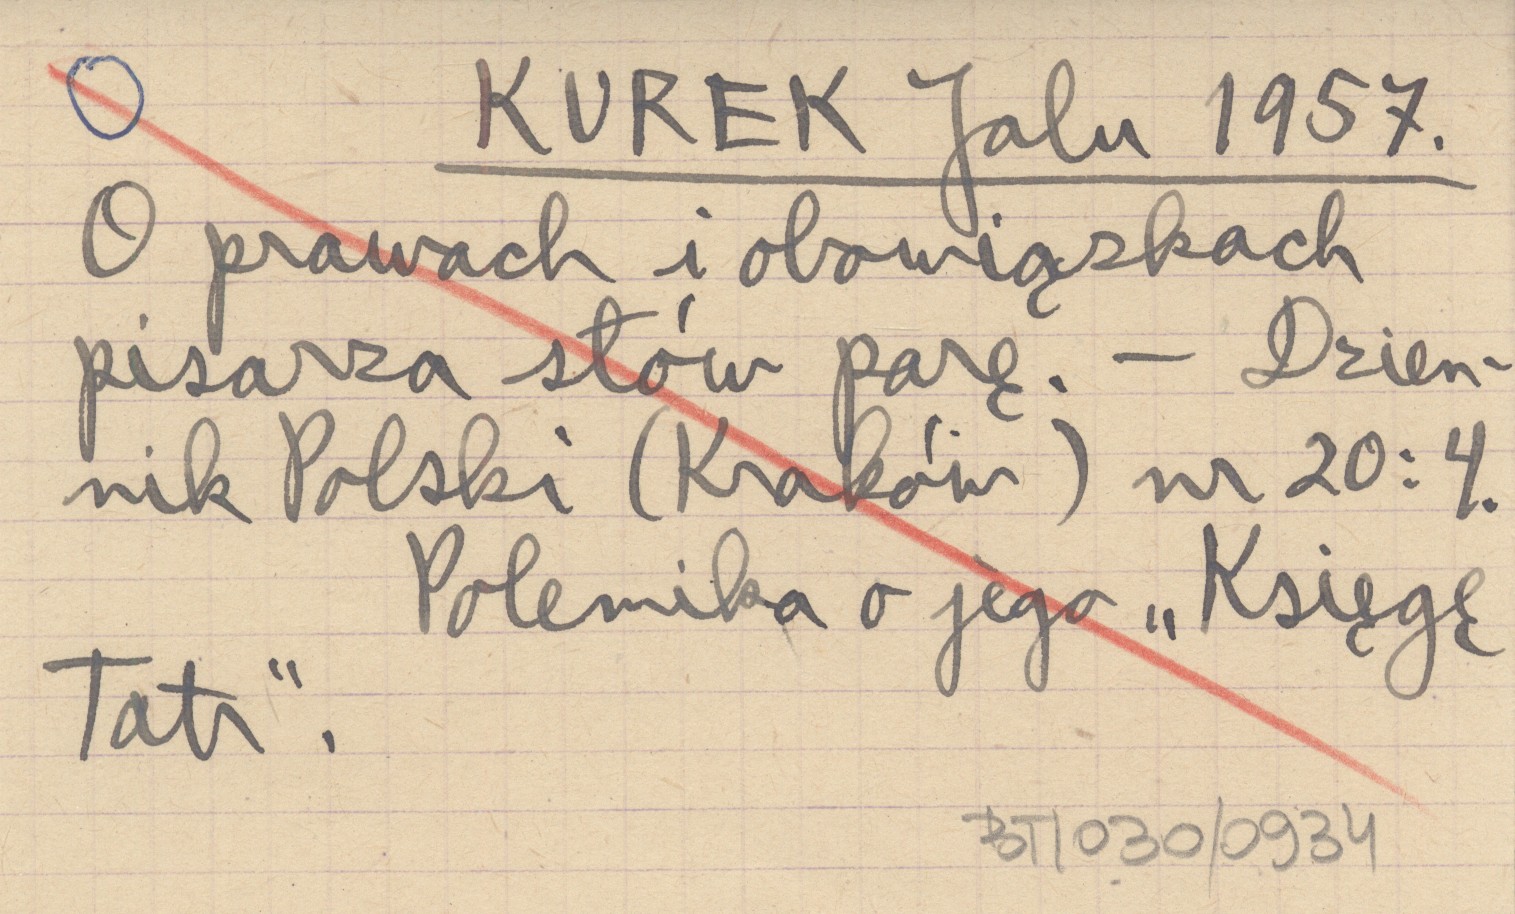 KUREK Jalu 1957.
O prawach i obowiązkach
pisarza słów parę. — Dzien-
nik Polski (Kraków) nr 20: 4.
Polemika o jego „Księgę
Tatr".
BT/030/0934